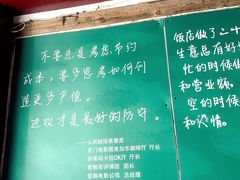 不要总是考虑节约
成本，要多思考如何创
造更多产值。
进攻才是最好的防守。
——人民剧场售票员
京门电影院美加乐咖啡厅 厅长
好莱坞卡拉OK厅 厅长
常熟市评弹团 团长
常熟电影公司 总经理
饭店做了二十
生意总有好
忙的时候做
和营业额。
空的时候
和热情。